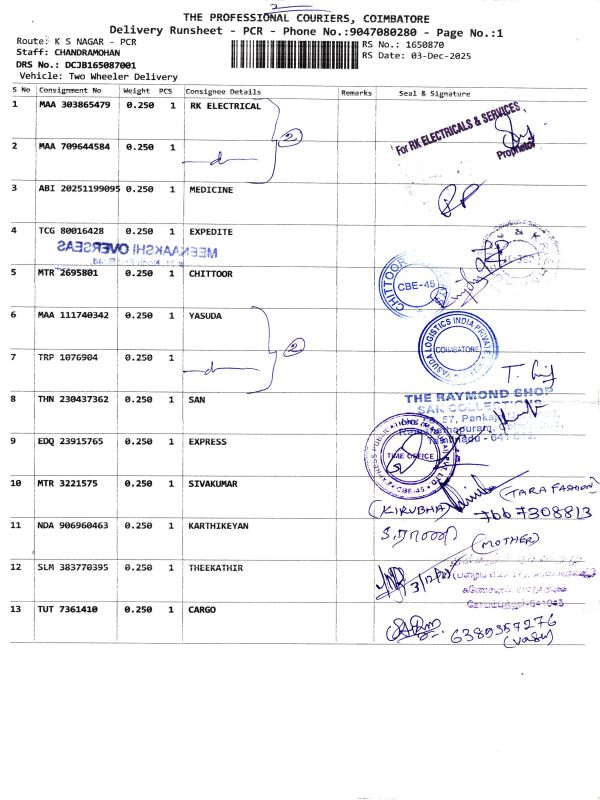 2
THE PROFESSIONAL COURIERS, COIMBATORE
Delivery Runsheet - PCR - Phone No.:9047080280 - Page No.:1
Route: K S NAGAR - PCR
RS No.: 1650870
Staff: CHANDRAMOHAN
RS Date: 03-Dec-2025
DRS No.: DCJB165087001
Vehicle: Two Wheeler Delivery
S No Consignment No Weight PCS Consignee Details Remarks Seal & Signature
1 MAA 303865479 0.250 1 RK ELECTRICAL
For RK ELECTRICALS & SERVICES
Proprietor
2
2 MAA 709644584 0.250 1 —d—
3 ABI 20251199095 0.250 1 MEDICINE
4 TCG 80016428 0.250 1 EXPEDITE
MEENAAKSHI OVERSEAS
5 MTR 2695801 0.250 1 CHITTOOR
CHITTOOR
CBE-45
6 MAA 111740342 0.250 1 YASUDA
YASUDA LOGISTICS INDIA PRIVATE
COIMBATORE
2
7 TRP 1076904 0.250 1 —d—
8 THN 230437362 0.250 1 SAN
THE RAYMOND SHOP
SAN COLLECTIONS
57, Pankaja
9 EDQ 23915765 0.250 1 EXPRESS
TIME OFFICE
CBE-45
10 MTR 3221575 0.250 1 SIVAKUMAR
(KIRUBHA)
(TARA FASHION)
7667308813
11 NDA 906960463 0.250 1 KARTHIKEYAN
(MOTHER)
12 SLM 383770395 0.250 1 THEEKATHIR
கோயமுத்தூர்-641043
13 TUT 7361410 0.250 1 CARGO
6389357276
(vasu)